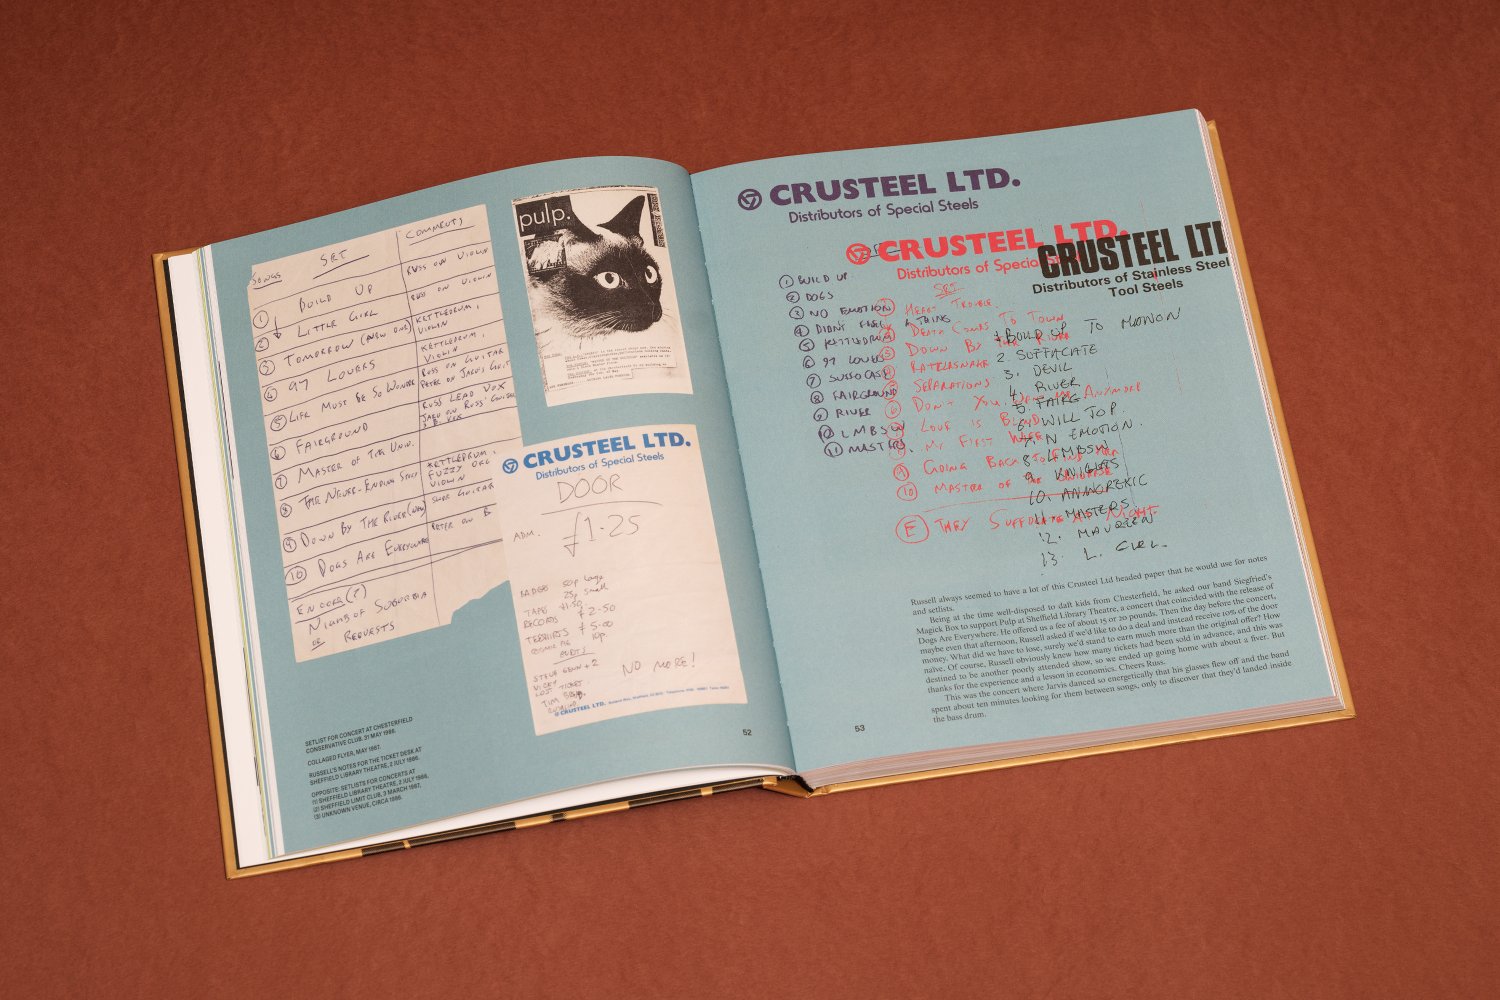 SONGS SET COMMENTS
1 BUILD UP RUSS ON VIOLIN
2 LITTLE GIRL RUSS ON VIOLIN
3 TOMORROW (NEW ONE) KETTLEDRUM, VIOLIN
4 97 LOVERS KETTLEDRUM, VIOLIN
5 LIFE MUST BE SO WONDER RUSS ON GUITAR
PETER ON JARV'S GUIT
6 FAIRGROUND RUSS LEAD VOX
JARV ON RUSS' GUITAR
7 MASTER OF THE UNIV.
8 THE NEVER-ENDING STORY KETTLEDRUM, FUZZY ORG
VIOLIN
9 DOWN BY THE RIVER (NEW) SLIDE GUITAR
10 DOGS ARE EVERYWHERE PETER ON B
ENCORE (?)
NIGHTS OF SUBURBIA
OR REQUESTS
pulp.
CRUSTEEL LTD.
Distributors of Special Steels
DOOR
ADM. £1·25
BADGE 50p large
25p small
TAPE £1·50
RECORDS £2·50
TEESHIRTS £5·00
10p
GUESTS
STEVE GENN + 2
VICKY
LOST TICKET.
TIM
NO MORE!
CRUSTEEL LTD.
SETLIST FOR CONCERT AT CHESTERFIELD
CONSERVATIVE CLUB, 31 MAY 1986.
COLLAGED FLYER, MAY 1987.
RUSSELL'S NOTES FOR THE TICKET DESK AT
SHEFFIELD LIBRARY THEATRE, 2 JULY 1986.
OPPOSITE: SETLISTS FOR CONCERTS AT
(1) SHEFFIELD LIBRARY THEATRE, 2 JULY 1986,
(2) SHEFFIELD LIMIT CLUB, 3 MARCH 1987,
(3) UNKNOWN VENUE, CIRCA 1986.
52
CRUSTEEL LTD.
Distributors of Special Steels
1 BUILD UP
2 DOGS
3 NO EMOTION
4 DIDN'T FEEL A THING
5 KETTLEDRUM
6 97 LOVERS
7 SUFFOCASE
8 FAIRGROUND
9 RIVER
10 LMBSW
11 MASTERS
CRUSTEEL LTD.
Distributors of Special
SET
1 HEART TROUBLE.
2 DEATH COMES TO TOWN
3 DOWN BY THE RIVER
4 RATTLESNAKE
5 SEPARATIONS
6 DON'T YOU WANT ME ANYMORE
7 LOVE IS BLIND
8 MY FIRST WIFE
9 GOING BACK TO FIND HER
10 MASTER OF THE UNIVERSE
E THEY SUFFOCATE AT NIGHT
CRUSTEEL LTD
Distributors of Stainless Steel
Tool Steels
1 BUILD UP TO MANON
2. SUFFACATE
3. DEVIL
4. RIVER
5. FAIRG
6. WILL TOP.
7. N EMOTION.
8. LMBSW
9. KNIGHTS
10. ANNOREXIC
11. MASTERS.
12. MAUREEN
13. L. GIRL.
Russell always seemed to have a lot of this Crusteel Ltd headed paper that he would use for notes
and setlists.
Being at the time well-disposed to daft kids from Chesterfield, he asked our band Siegfried's
Magick Box to support Pulp at Sheffield Library Theatre, a concert that coincided with the release of
Dogs Are Everywhere. He offered us a fee of about 15 or 20 pounds. Then the day before the concert,
maybe even that afternoon, Russell asked if we'd like to do a deal and instead receive 10% of the door
money. What did we have to lose, surely we'd stand to earn much more than the original offer? How
naïve. Of course, Russell obviously knew how many tickets had been sold in advance, and this was
destined to be another poorly attended show, so we ended up going home with about a fiver. But
thanks for the experience and a lesson in economics. Cheers Russ.
This was the concert where Jarvis danced so energetically that his glasses flew off and the band
spent about ten minutes looking for them between songs, only to discover that they'd landed inside
the bass drum.
53